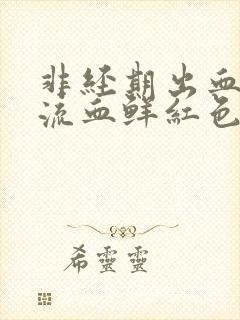 非经期出血
流血鲜红色
希靈靈